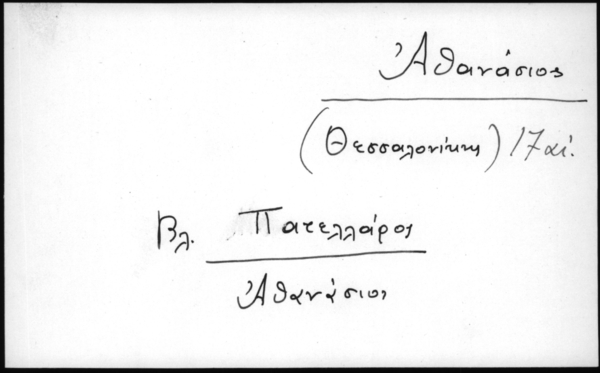 Ἀθανάσιος
(Θεσσαλονίκης) 17 αἰ.
Βλ. Πατελλάρος
Ἀθανάσιος